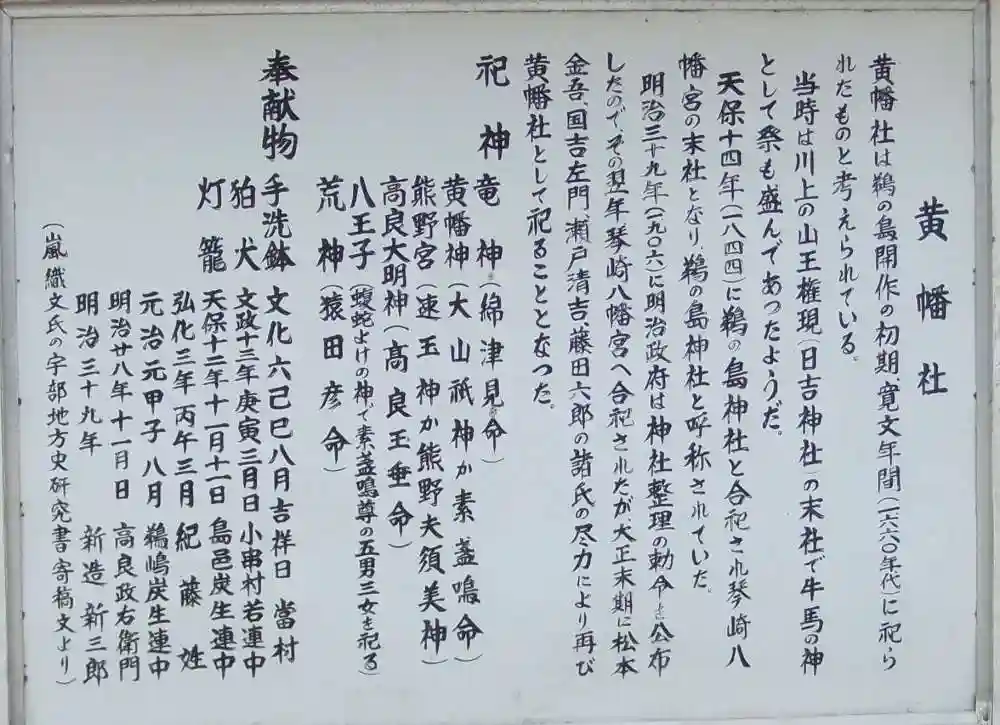 黄幡社
黄幡社は鵜の島開作の初期、寛文年間(一六六〇年代)に祀ら
れたものと考えられている。
当時は川上の山王権現(日吉神社)の末社で牛馬の神
として祭も盛んであったようだ。
天保十四年(一八四四)に鵜の島神社と合祀され琴崎八
幡宮の末社となり、鵜の島神社と呼称されていた。
明治三十九年(一九〇六)に明治政府は神社整理の勅令を公布
したので、その翌年琴崎八幡宮へ合祀されたが、大正末期に松本
金吾、国吉左門、瀬戸清吉、藤田六郎の諸氏の尽力により再び
黄幡社として祀ることとなった。
祀神 竜神(綿津見命)
黄幡神(大山祇神か素盞鳴命)
熊野宮(速玉神か熊野夫須美神)
高良大明神(高良玉垂命)
八王子(蝮蛇よけの神で素盞鳴尊の五男三女を祀る)
荒神(猿田彦命)
奉献物 手洗鉢 文化六己巳八月吉祥日 當村
狛犬 文政十三年庚寅三月日 小串村若連中
灯籠 天保十二年十一月十一日 島邑炭生連中
弘化三年丙午三月 紀藤姓
元治元甲子八月 鵜嶋炭生連中
明治廿八年十一月日 高良政右衛門
明治三十九年 新造新三郎
(嵐織文氏の宇部地方史研究書寄稿文より)